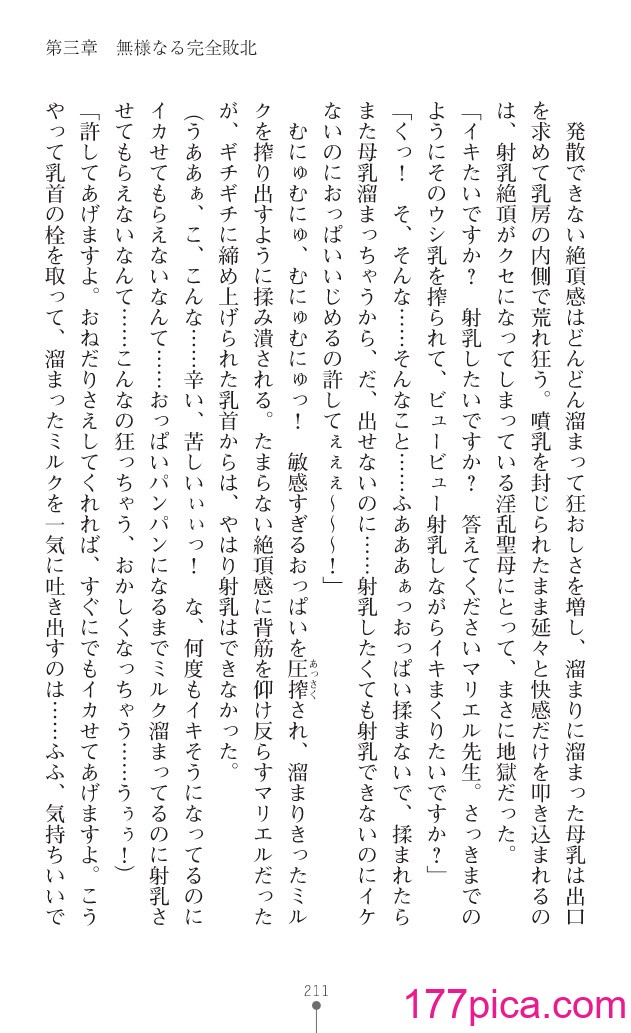 第三章　無様なる完全敗北
発散できない絶頂感はどんどん溜まって狂おしさを増し、溜まりに溜まった母乳は出口
を求めて乳房の内側で荒れ狂う。噴乳を封じられたまま延々と快感だけを叩き込まれるの
は、射乳絶頂がクセになってしまっている淫乱聖母にとって、まさに地獄だった。
「イキたいですか？　射乳したいですか？　答えてくださいマリエル先生。さっきまでの
ようにそのウシ乳を搾られて、ビュービュー射乳しながらイキまくりたいですか？」
「くっ！　そ、そんな……そんなこと……ふあああぁっおっぱい揉まないで、揉まれたら
また母乳溜まっちゃうから、だ、出せないのに……射乳したくても射乳できないのにイケ
ないのにおっぱいいじめるの許してぇぇぇ～～～！」
むにゅむにゅ、むにゅむにゅっ！　敏感すぎるおっぱいを圧搾され、溜まりきったミル
あっさく
クを搾り出すように揉み潰される。たまらない絶頂感に背筋を仰け反らすマリエルだった
が、ギチギチに締め上げられた乳首からは、やはり射乳はできなかった。
（うああぁ、こ、こんな……辛い、苦しいぃぃっ！　な、何度もイキそうになってるのに
イカせてもらえないなんて……おっぱいパンパンになるまでミルク溜まってるのに射乳さ
せてもらえないなんて……こんなの狂っちゃう、おかしくなっちゃう……うぅぅ！）
「許してあげますよ。おねだりさえしてくれれば、すぐにでもイカせてあげますよ。こう
やって乳首の栓を取って、溜まったミルクを一気に吐き出すのは……ふふ、気持ちいいで
211
177pica.com